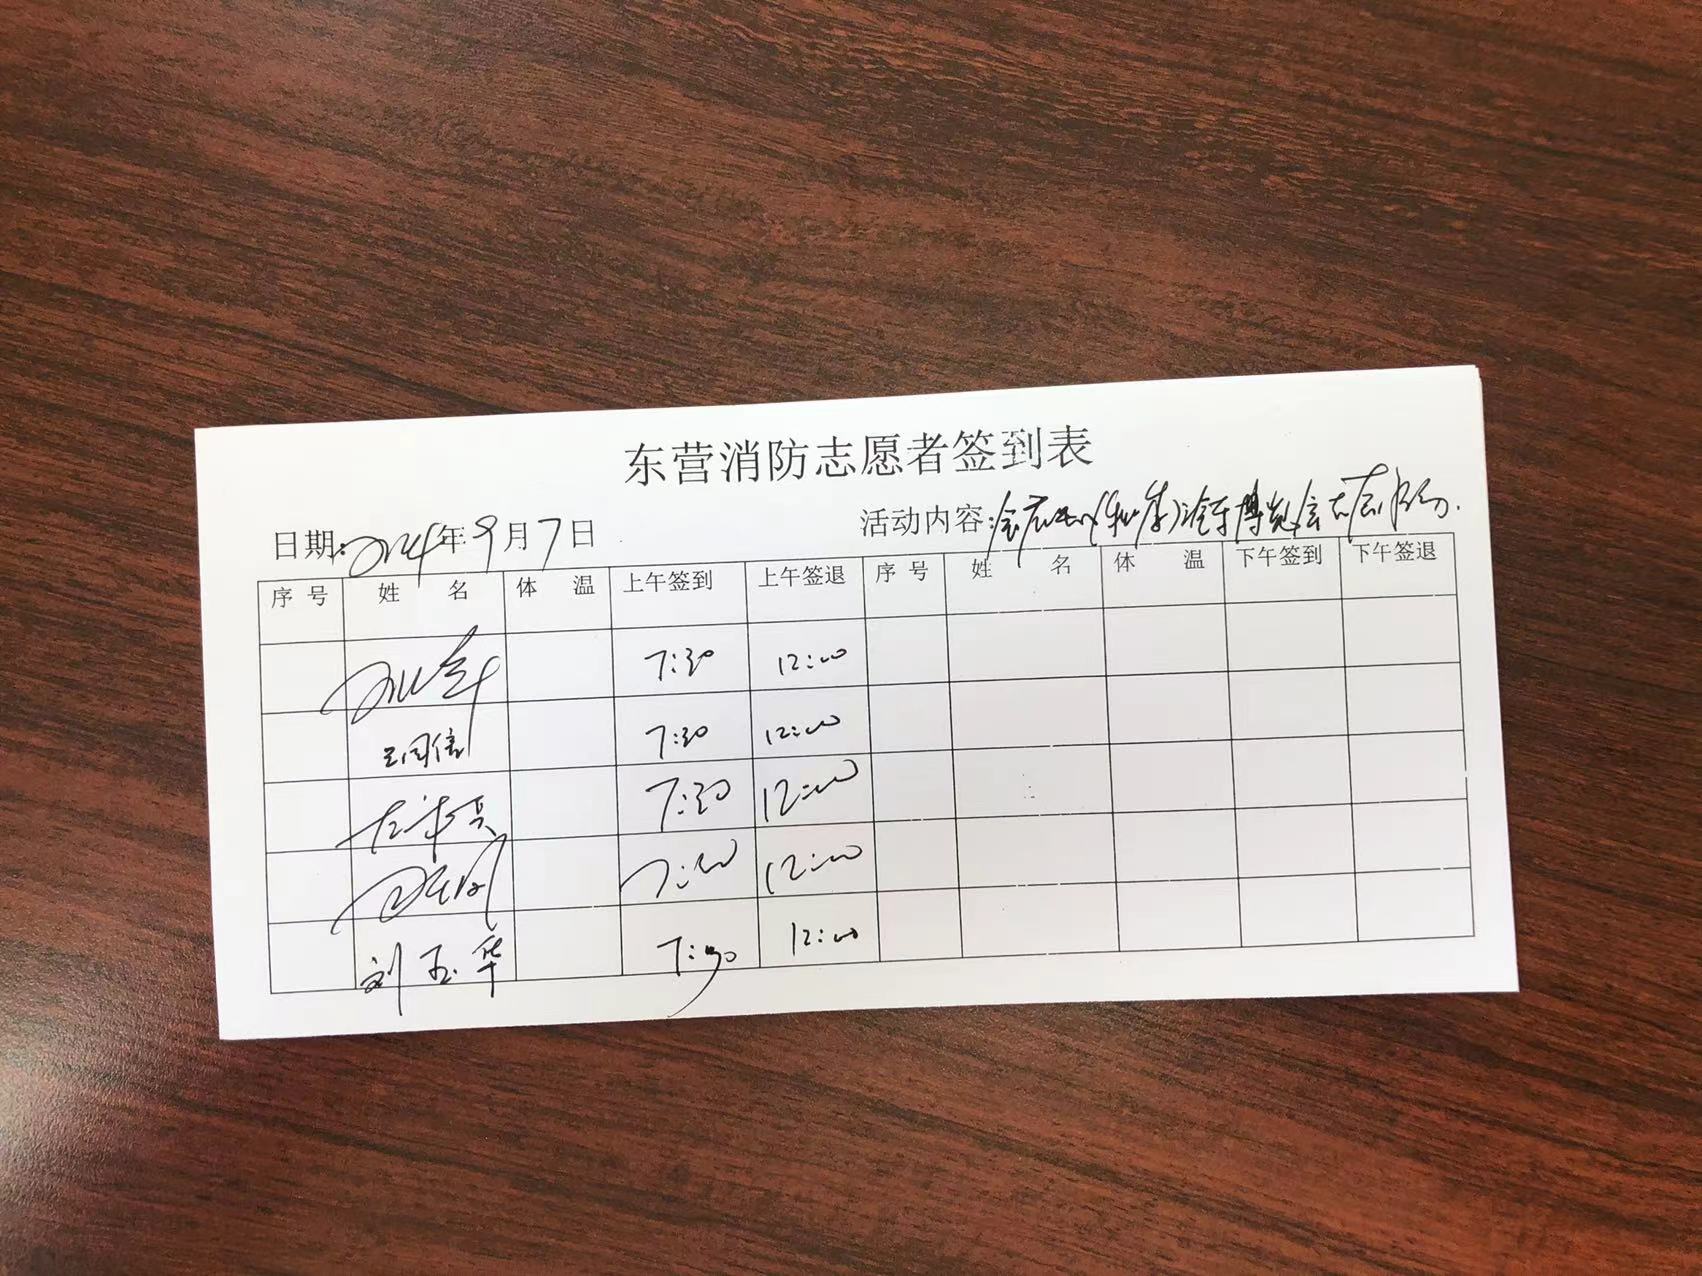 东营消防志愿者签到表
日期:2024年9月7日 活动内容:(秋季)汽车博览会志愿服务.
序号 姓名 体温 上午签到 上午签退 序号 姓名 体温 下午签到 下午签退
7:30 12:00
王国信 7:30 12:00
7:30 12:00
7:30 12:00
刘玉华 7:30 12:00